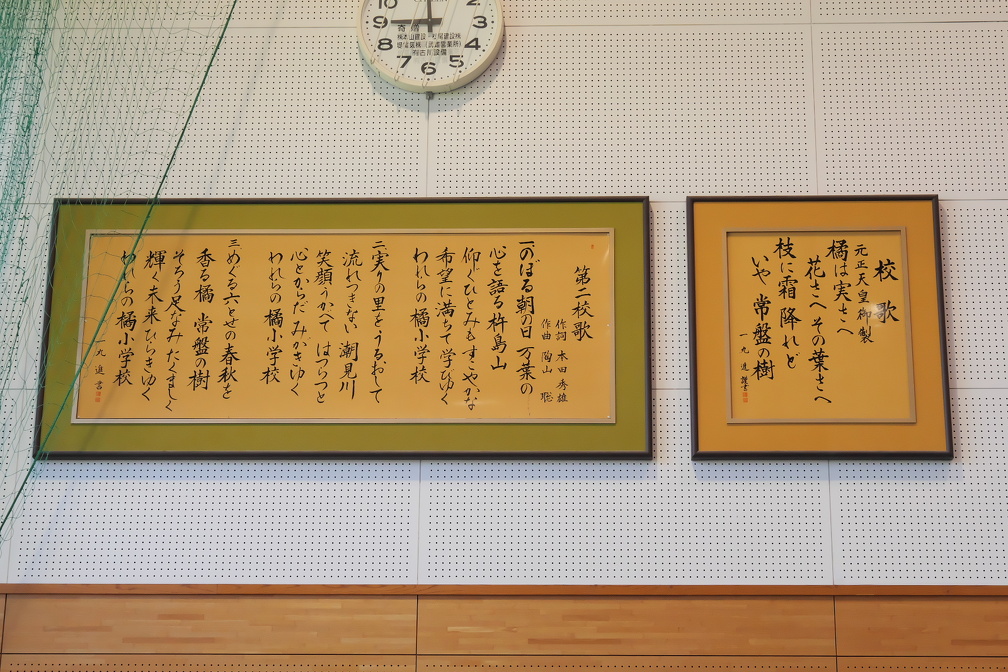 10
2
9
3
8
4
7
6
5
校歌
元正天皇御製
橘は実さへ
花さへその葉さへ
枝に霜降れど
いや常盤の樹
一九進謹書
第二校歌
作詞 本田秀雄
作曲 陶山聡
一のぼる朝の日万葉の
心を語る杵島山
仰ぐひとみもすこやかな
希望に満ちて学びゆく
われらの橘小学校
二実りの里をうるおして
流れつきない潮見川
笑顔うかべてはつらつと
心とからだみがきゆく
われらの橘小学校
三めぐる六とせの春秋を
香る橘常盤の樹
そろう足なみたくましく
輝く未来ひらきゆく
われらの橘小学校
一九進書